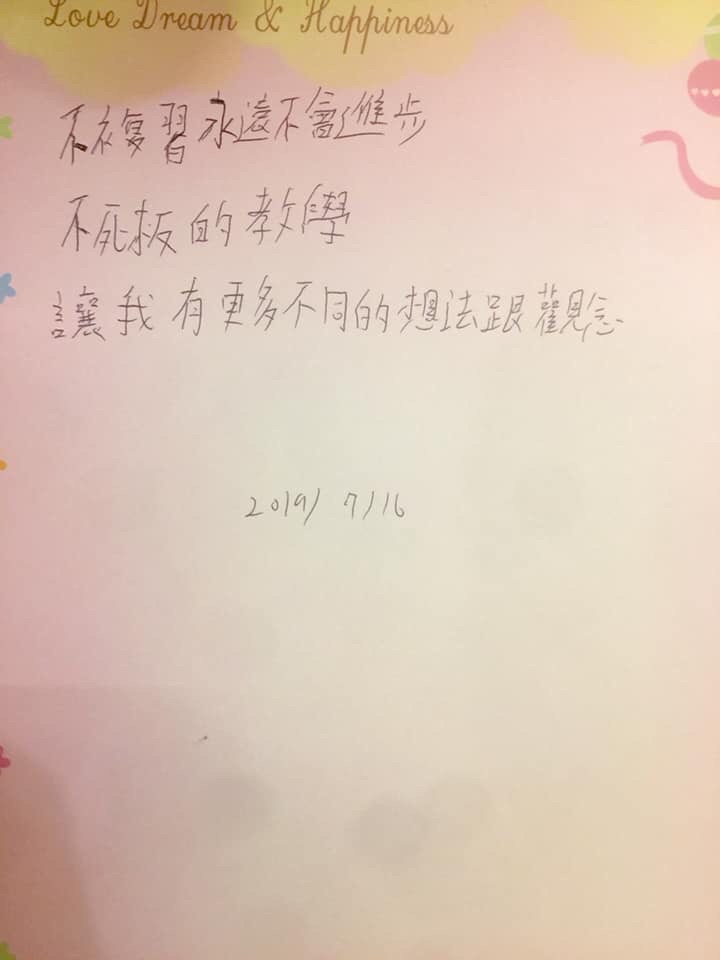 Love Dream & Happiness
不複習永遠不會進步
不死板的教學
讓我有更多不同的想法跟觀念
2019/7/16